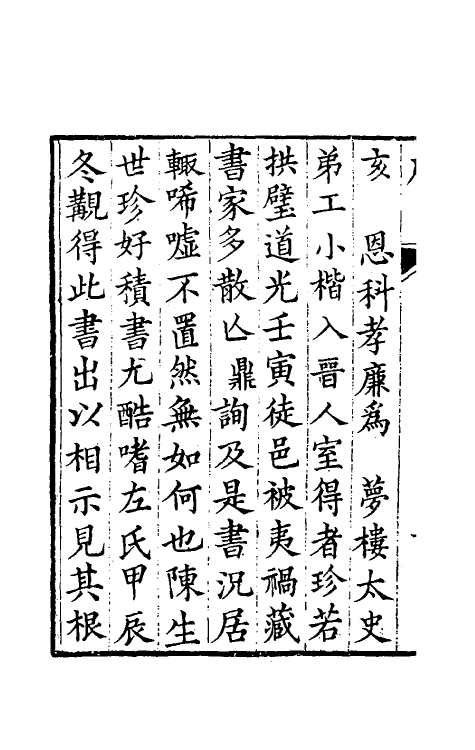 亥　恩科孝廉爲　夢樓太史
弟工小楷入晉人室得者珍若
拱璧道光壬寅徒邑被夷禍藏
書家多散亾鼎詢及是書況居
輙唏噓不置然無如何也陳生
世珍好積書尤酷嗜左氏甲辰
冬覯得此書出以相示見其根